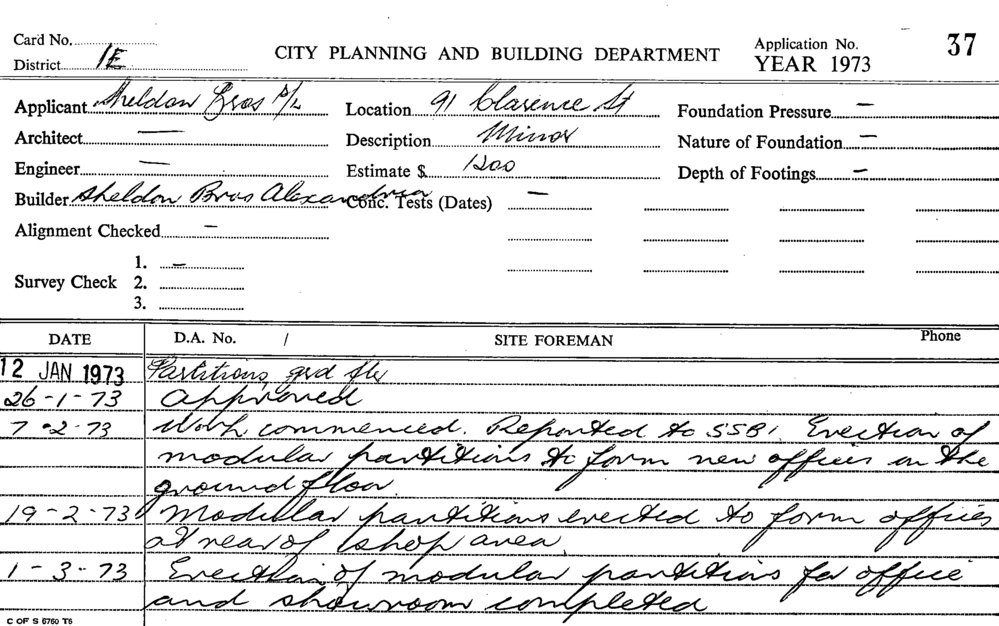 Card No. CITY PLANNING AND BUILDING DEPARTMENT Application No. 37
District 1E YEAR 1973
Applicant Sheldon Bros P/L Location 91 Clarence St Foundation Pressure —
Architect — Description Minor Nature of Foundation —
Engineer — Estimate $ 1200 Depth of Footings —
Builder Sheldon Bros Alexandria Conc. Tests (Dates) —
Alignment Checked —
1. —
Survey Check 2.
3.
DATE D.A. No. / SITE FOREMAN Phone
12 JAN 1973 Partitions grd flr
26-1-73 Approved
7-2-73 Work commenced. Reported to SSBI. Erection of
modular partitions to form new offices on the
ground floor.
19-2-73 Modular partitions erected to form offices
at rear of shop area.
1-3-73 Erection of modular partitions for office
and showroom completed
C OF S 6760 T6